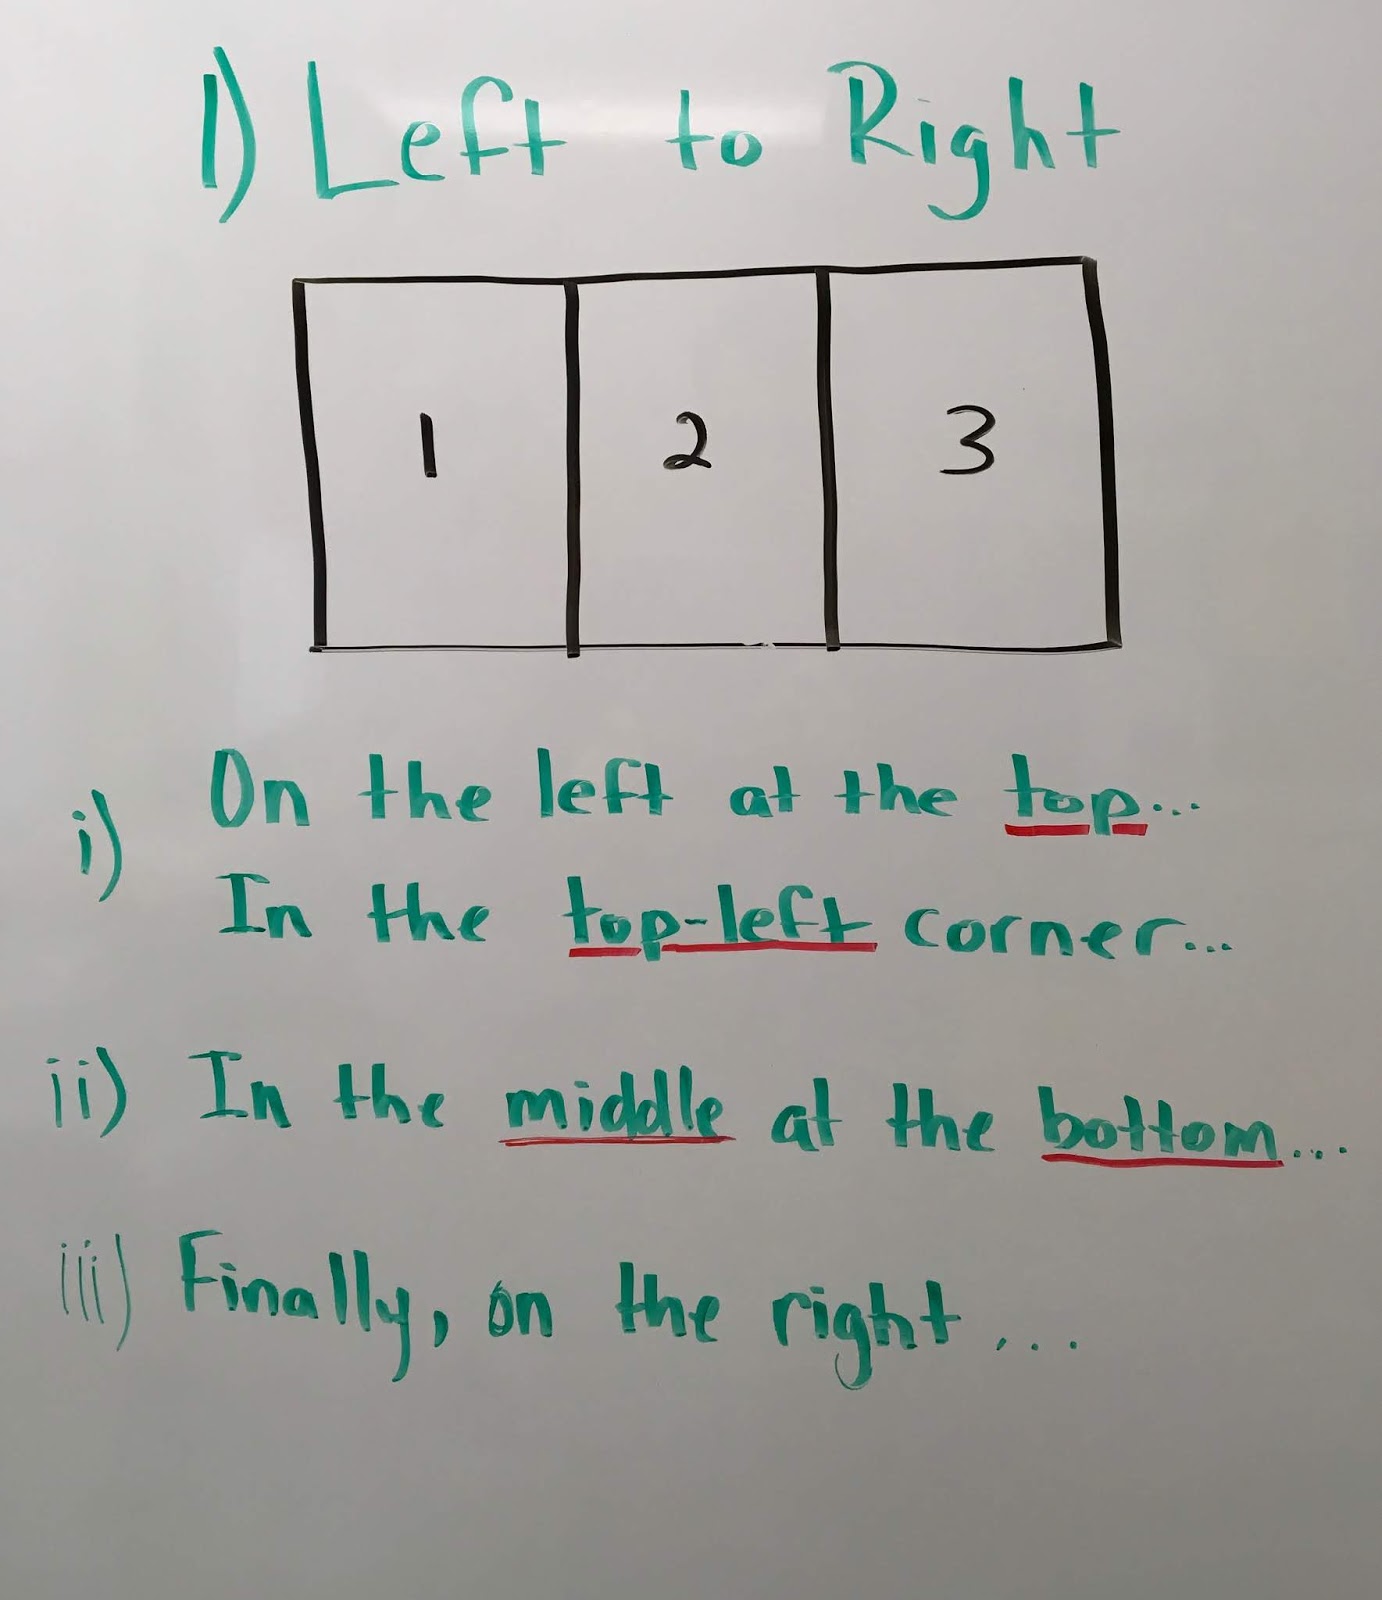 1) Left to Right
1 2 3
i) On the left at the top...
In the top-left corner...
ii) In the middle at the bottom...
iii) Finally, on the right...